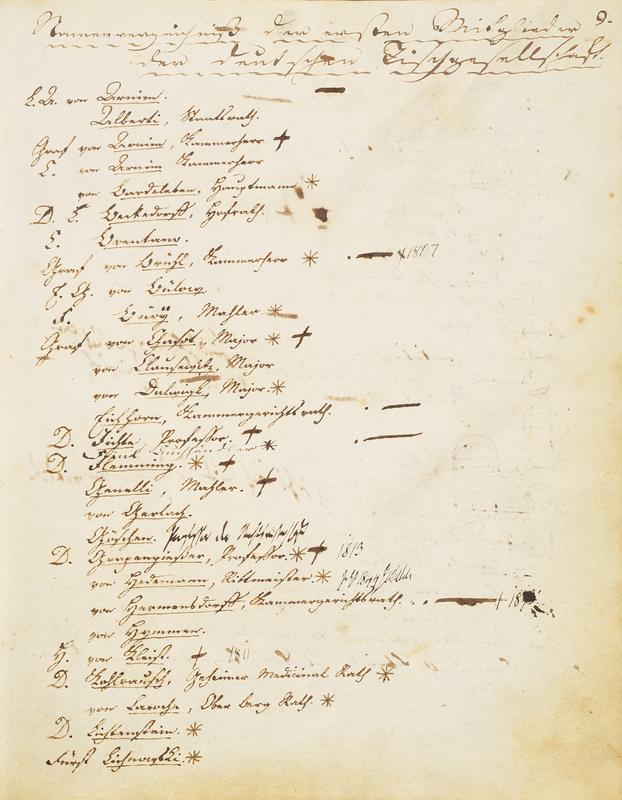 9.
Namenverzeichniß der ersten Mitglieder
der deutschen Tischgesellschaft.
L. A. von Arnim.
Alberti, Staatsrath.
Graf von Arnim, Kammerherr +
C. von Arnim Kammerherr
von Bardeleben, Hauptmann *
D. L. Beckedorff, Hofrath.
C. Brentano.
Graf von Brühl, Kammerherr * +
F. G. von Bülow.
F. Bury, Mahler *
Graf von Chasot, Major * +
von Clausewitz, Major
von Dalwigk, Major. *
Eichhorn, Kammergerichtsrath.
D. Fichte, Professor. +
Buchhändler *
D. Flemming. * +
Genelli, Mahler. +
von Gerlach.
Göschen. Professor der
D. Grapengießer, Professor. * + 1813
von Hedemann, Rittmeister *
von Hermensdorff, Kammergerichtsrath. +
von Hymmen.
H. von Kleist. + 1811
D. Kohlrausch, Geheimer Medicinal Rath *
von Laroche, Ober Berg Rath. *
D. Lichtenstein. *
Fürst Lichnowski. *